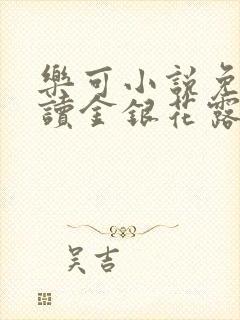 樂可小說免
讀金銀花露
吴吉